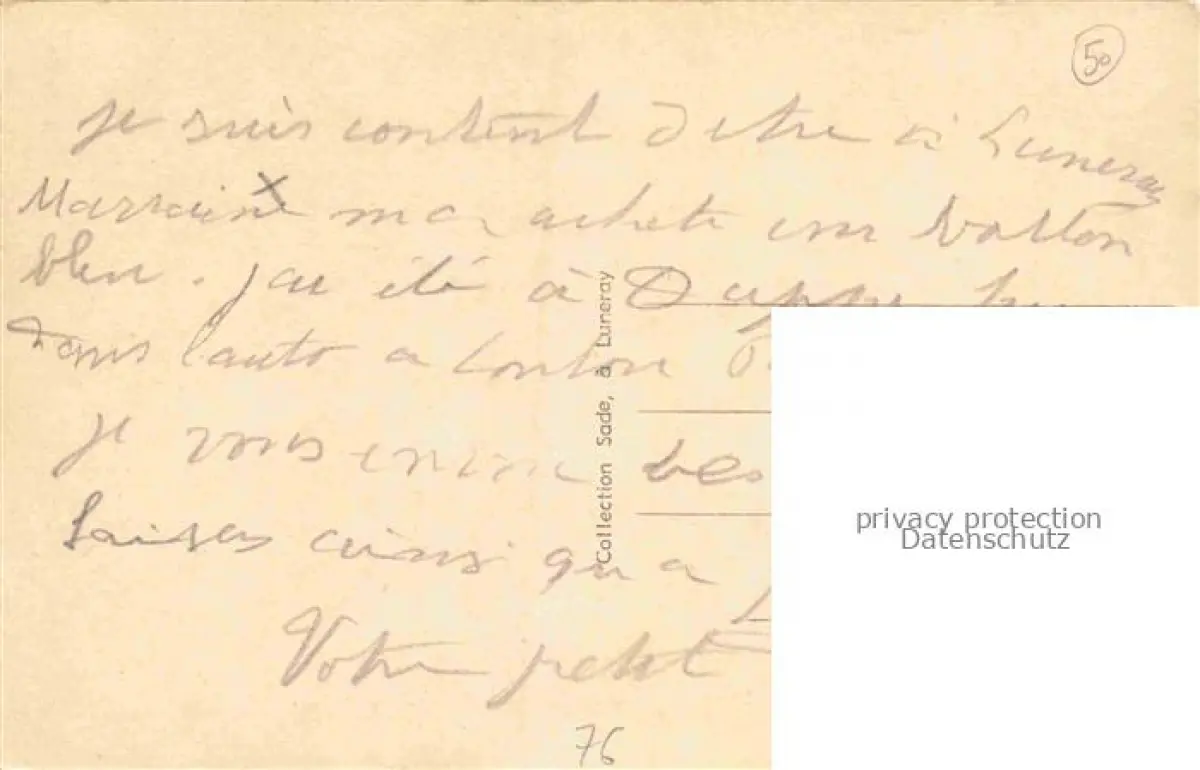 50
je suis content detre à Luneray
Marraine ma achete un ballon
bleu. jai été à Dieppe
dans lauto a tonton
je vous envoie des
baisers ainsi qu a
Votre petit
76
Collection Sade, à Luneray
privacy protection
Datenschutz